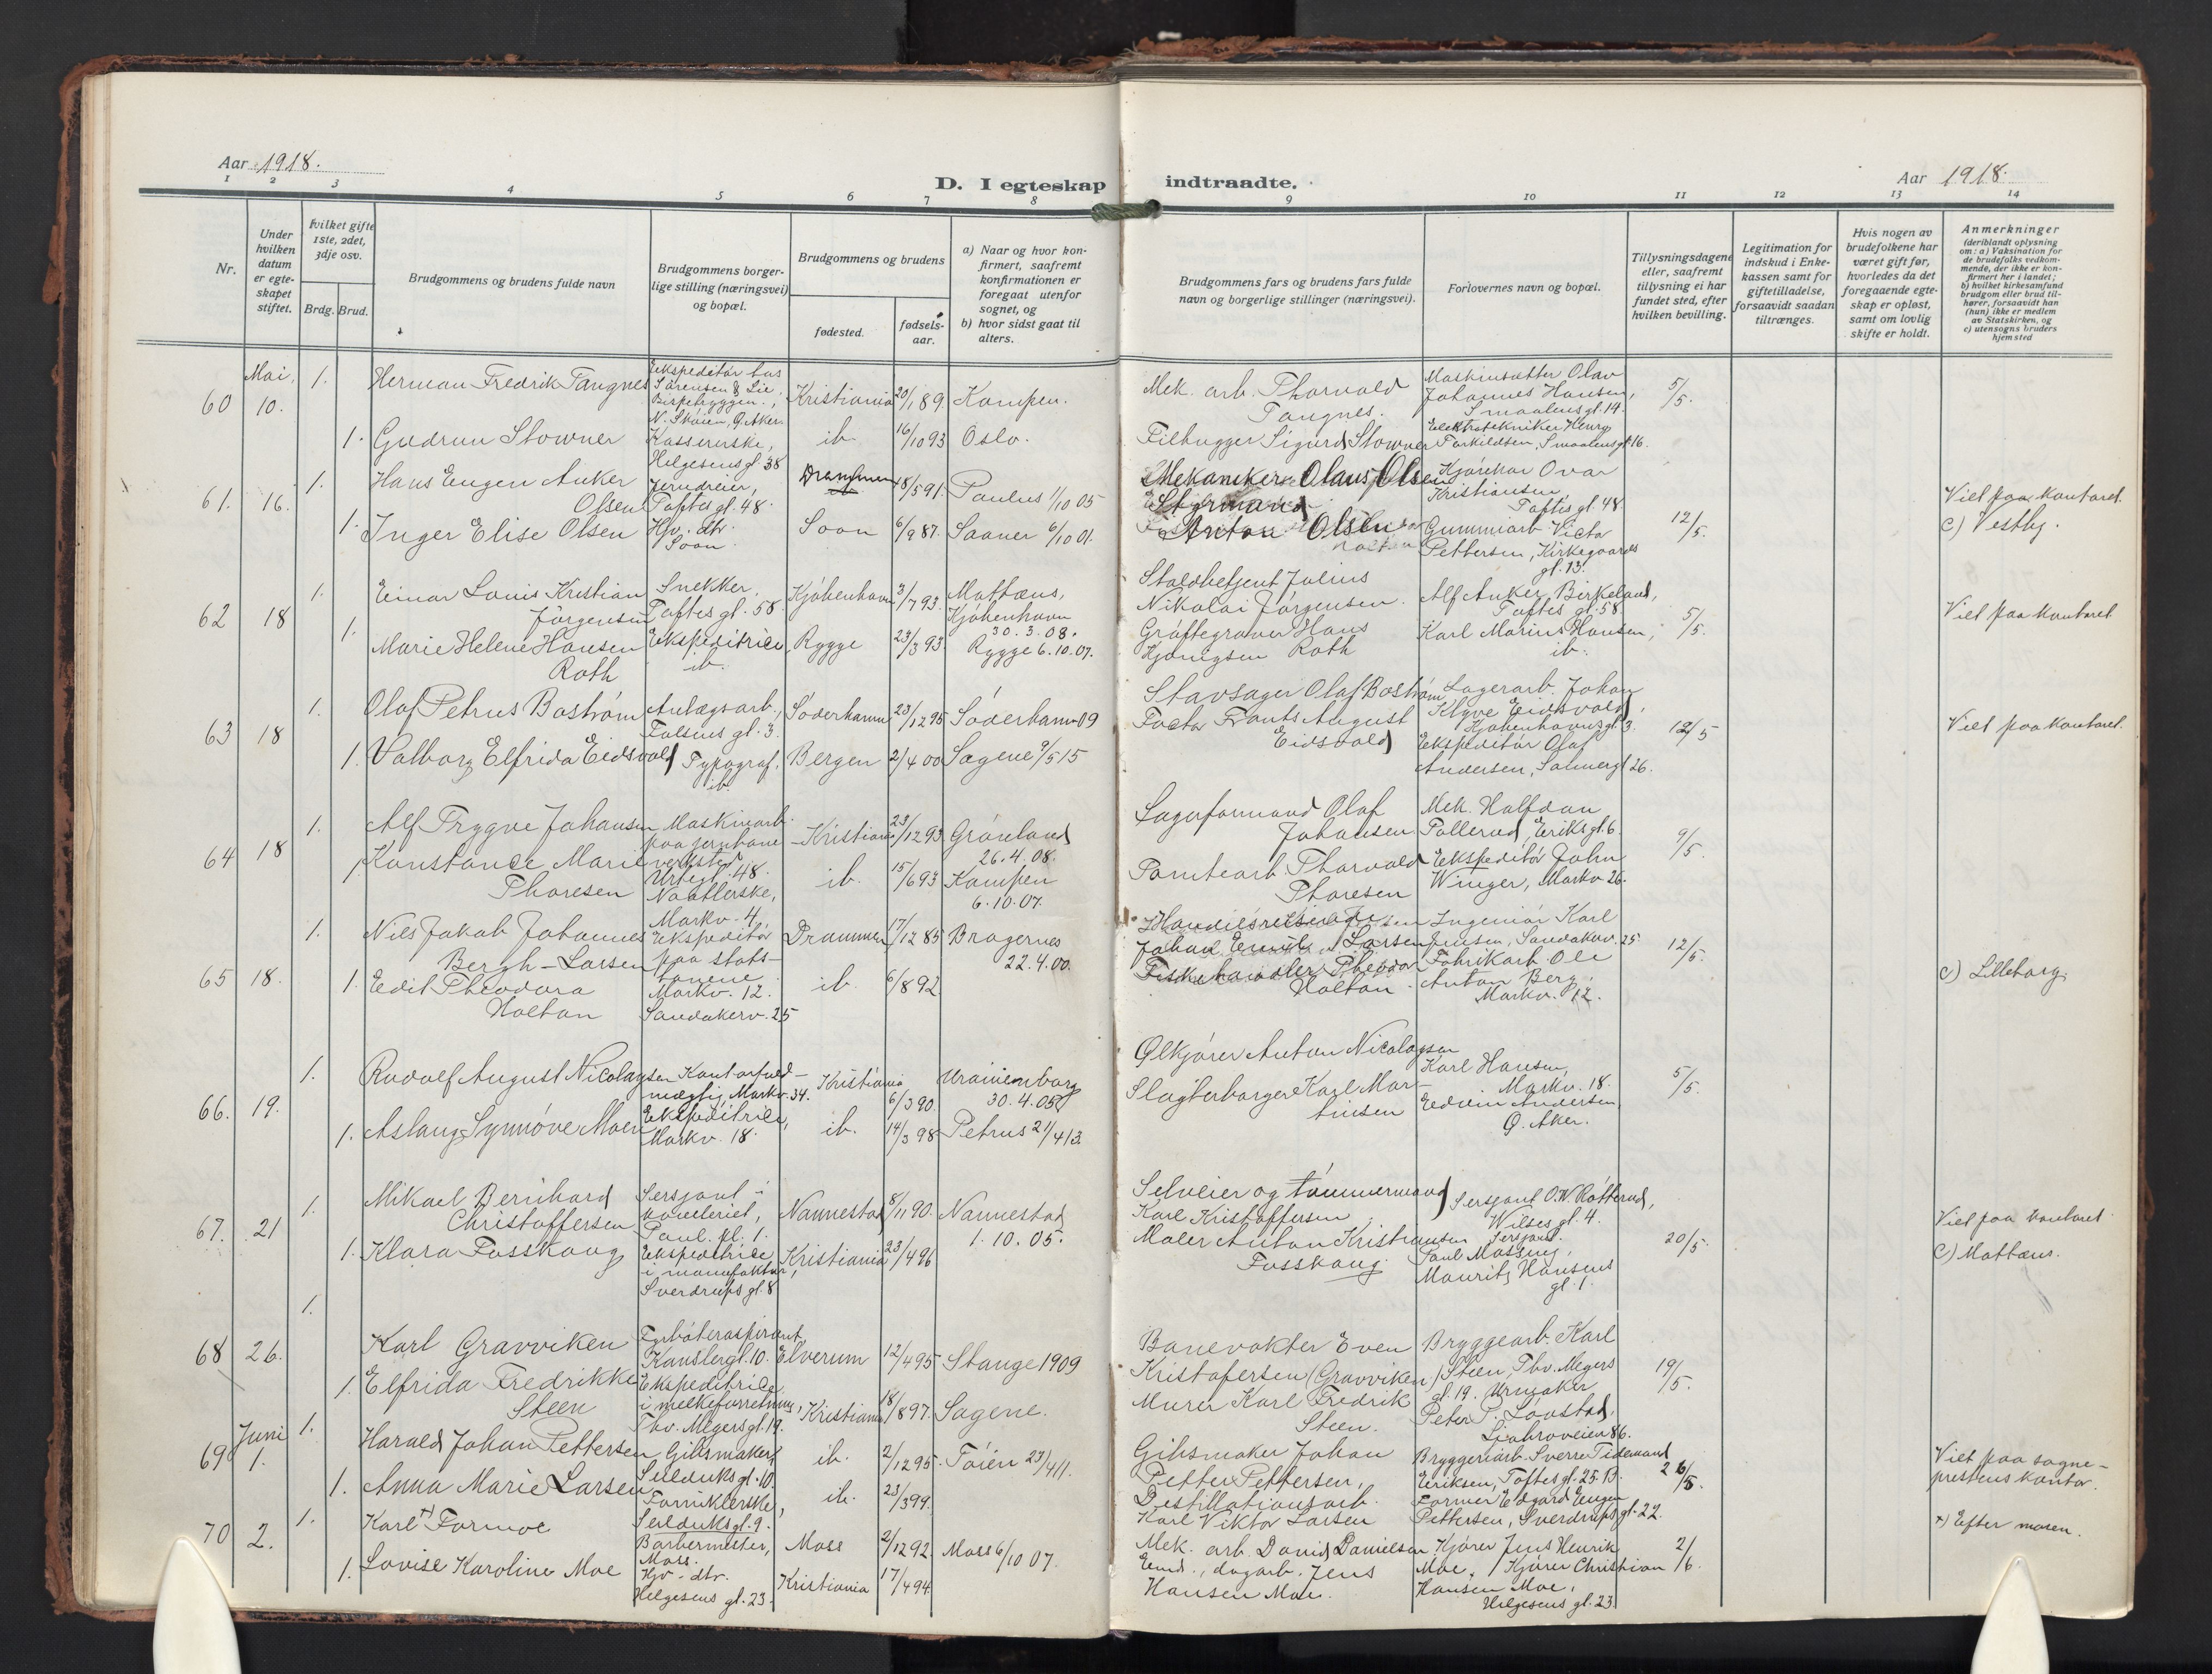 Aar 1918.
D. I egteskap indtraadte.
Aar 1918.
1 2 3 4 5 6 7 8 9 10 11 12 13 14
Nr.
Under hvilken datum er egteskapet stiftet.
Hvilket gifte 1ste, 2det, 3dje osv.
Brdg. Brud.
Brudgommens og brudens fulde navn
Brudgommens borgerlige stilling (næringsvei) og bopæl.
Brudgommens og brudens
fødested.
fødselsaar.
a) Naar og hvor konfirmert, saafremt konfirmationen er foregaat utenfor sognet, og
b) hvor sidst gaat til alters.
Brudgommens fars og brudens fars fulde navn og borgerlige stillinger (næringsvei).
Forlovernes navn og bopæl.
Tillysningsdagene eller, saafremt tillysning ei har fundet sted, efter hvilken bevilling.
Legitimation for indskud i Enkekassen samt for giftetilladelse, forsaavidt saadan tiltrænges.
Hvis nogen av brudefolkene har været gift før, hvorledes da det foregaaende egteskap er opløst, samt om lovlig skifte er holdt.
Anmerkninger
(deriblandt oplysning om: a) Vaksination for de brudefolks vedkommende, der ikke er konfirmert her i landet;
b) hvilket kirkesamfund brudgom eller brud tilhører, forsaavidt han (hun) ikke er medlem av Statskirken, og
c) utensogns bruders hjemsted
60 Mai. 10. 1. Herman Fredrik Tangnes
Ekspeditør hos Sørensen & Lie, N. Skøien, Ø. Aker.
Kristiania 20/1 89. Kampen.
Mek. arb. Thorvald Tangnes.
Maskinsætter Olav Johannes Hansen, Smaalensgt. 14.
5/5.
1. Gudrun Stowner
Kassererske, Helgesensgt. 38
ib. 16/10 93 Oslo.
Filhugger Sigurd Stowner
Elektrotekniker Henry Torkildsen, Smaalensgt. 16.
61. 16. 1. Hans Eugen Anker Olsen
Jerndreier, Toftesgt. 48.
Drammen 18/5 91. Paulus 1/10 05
Mekaniker Olaus Olsen
Kristiansen, Toftes gt. 48.
12/5.
Viet paa kontoret.
c) Vestby.
1. Inger Elise Olsen
Hjv. dtr. Soon
Soon 6/9 87. Saaner 6/10 01.
Styrmand Anton Olsen
Gummiarb. Victor Pettersen, Kirkegaards gt. 13.
62 18 1. Einar Louis Kristian Jørgensen
Snekker, Toftes gt. 58.
Kjøbenhavn 3/7 93. Mattæus, Kjøbenhavn 30.3.08.
Staldbetjent Julius Nikolai Jørgensen.
Alf Anker Birkeland, Toftes gt. 58
5/5.
Viet paa kontoret.
1. Marie Helene Hansen Roth
Ekspeditrice, ib.
Rygge 23/3 93. Rygge 6.10.07.
Grøftegraver Hans Roth
Karl Marius Hansen, ib.
63 18 1. Olaf Petrus Boström
Anlægsarb., Falsens gt. 3.
Söderhamn 23/12 95 Söderhamn 09
Stavsager Olaf Boström
Lagerarb. Johan Klyve Eidsvold, Kjøbenhavnsgt. 3.
12/5
Viet paa kontoret.
1. Valborg Elfrida Eidsvold
Typograf, ib.
Bergen 2/4 00 Sagene 9/5 15
Factor Frants August Eidsvold
Ekspeditør Olaf Andersen, Sannergt. 26.
64 18 1. Alf Trygve Johansen
Maskinarb. paa jernbaneverksted, Urtegt. 48.
Kristiania 23/12 93. Grønland 26.4.08.
Lagerformand Olaf Johansen
Mek. Halfdan Pollerud, Eriks gt. 6.
9/5.
1. Konstance Marie Thoresen
Naatlerske, Markv. 4.
ib. 15/6 93 Kampen 6.10.07.
Tomtearb. Thorvald Thoresen
Ekspeditør John Winger, Markv. 26.
65 18. 1. Nils Jakob Johannes Bergh-Larsen
Ekspeditør paa statsbanene, Markv. 12.
Drammen 17/12 85 Bragernes 22.4.00.
Handelsreisende Johan Emil Larsen
Ingeniør Karl Jensen, Sandakerv. 25.
12/5.
c) Lilleborg.
1. Edit Theodora Holtan
Sandakerv. 25
ib. 6/8 92
Fiskehandler Theodor Holtan.
Fabrikarb. Ole Anton Berg, Markv. 12.
66. 19. 1. Rudolf August Nicolaysen
Kontorfuldmægtig, Markv. 34.
Kristiania 6/3 90. Uranienborg 30.4.05
Ølkjører Anton Nicolaysen
Karl Hansen, Markv. 18.
5/5.
1. Aslaug Synnøve Moen
Ekspeditrice, Markv. 18.
ib. 14/3 98 Petrus 21/4 13.
Slagterborger Karl Martinsen
Edvin Andersen, Ø. Aker.
67. 21 1. Mikael Bernhard Christoffersen
Sersjant i kavaleriet, Paul. pl. 1.
Nannestad 8/11 90. Nannestad 1.10.05.
Selveier og tømmermand Karl Kristoffersen
Sersjant O. W. Røtterud, Wilses gt. 4.
20/5.
Viet paa kontoret.
c) Mattæus.
1. Klara Fosskaug
Ekspeditrice i manufaktur, Sverdrups gt. 8
Kristiania 23/4 96
Maler Anton Kristiansen Fosskaug.
Sersjant Paul Mossing, Maurits Hansens gt. 1.
68 26. 1. Karl Gravviken
Fyrbøteraspirant, Kanslergt. 10.
Elverum 12/4 95 Stange 1909
Banevokter Even Kristofersen (Gravviken)
Bryggearb. Karl Steen, Thv. Meyers gt. 19.
19/5.
1. Elfrida Fredrikke Steen
Ekspeditrice i melkeforretning, Thv. Meyersgt. 19.
Kristiania 18/8 97. Sagene.
Murer Karl Fredrik Steen.
Urmaker Peter P. Løvstad, Ljabroveien 86.
69 Juni 1. 1. Harald Johan Pettersen
Gibsmaker, Seilduksgt. 10.
ib. 2/12 95. Tøien 23/4 11.
Gibsmaker Johan Petter Pettersen,
Bryggeriarb. Sverre Tidemand Eriksen, Toftes gt. 25.
26/5.
Viet paa sogneprestens kontor.
1. Anna Marie Larsen
Forniklerske, Seilduksgt. 9.
ib. 23/3 99.
Destillationsarb. Karl Viktor Larsen
Former Edgard Eugen Pettersen, Sverdrupsgt. 22.
70 2. 1. Karl x) Formoe
Barbermester, Moss.
Moss 2/12 92. Moss 6/10 07.
Mek. arb. David Danielsen
Kjører Jens Henrik Moe.
2/6.
x) Efter moren.
1. Lovise Karoline Moe
Hjv. dtr. Helgesens gt. 23.
Kristiania 17/4 94.
dagarb. Jens Hansen Moe.
Kjører Christian Hansen Moe, Helgesens gt. 23.